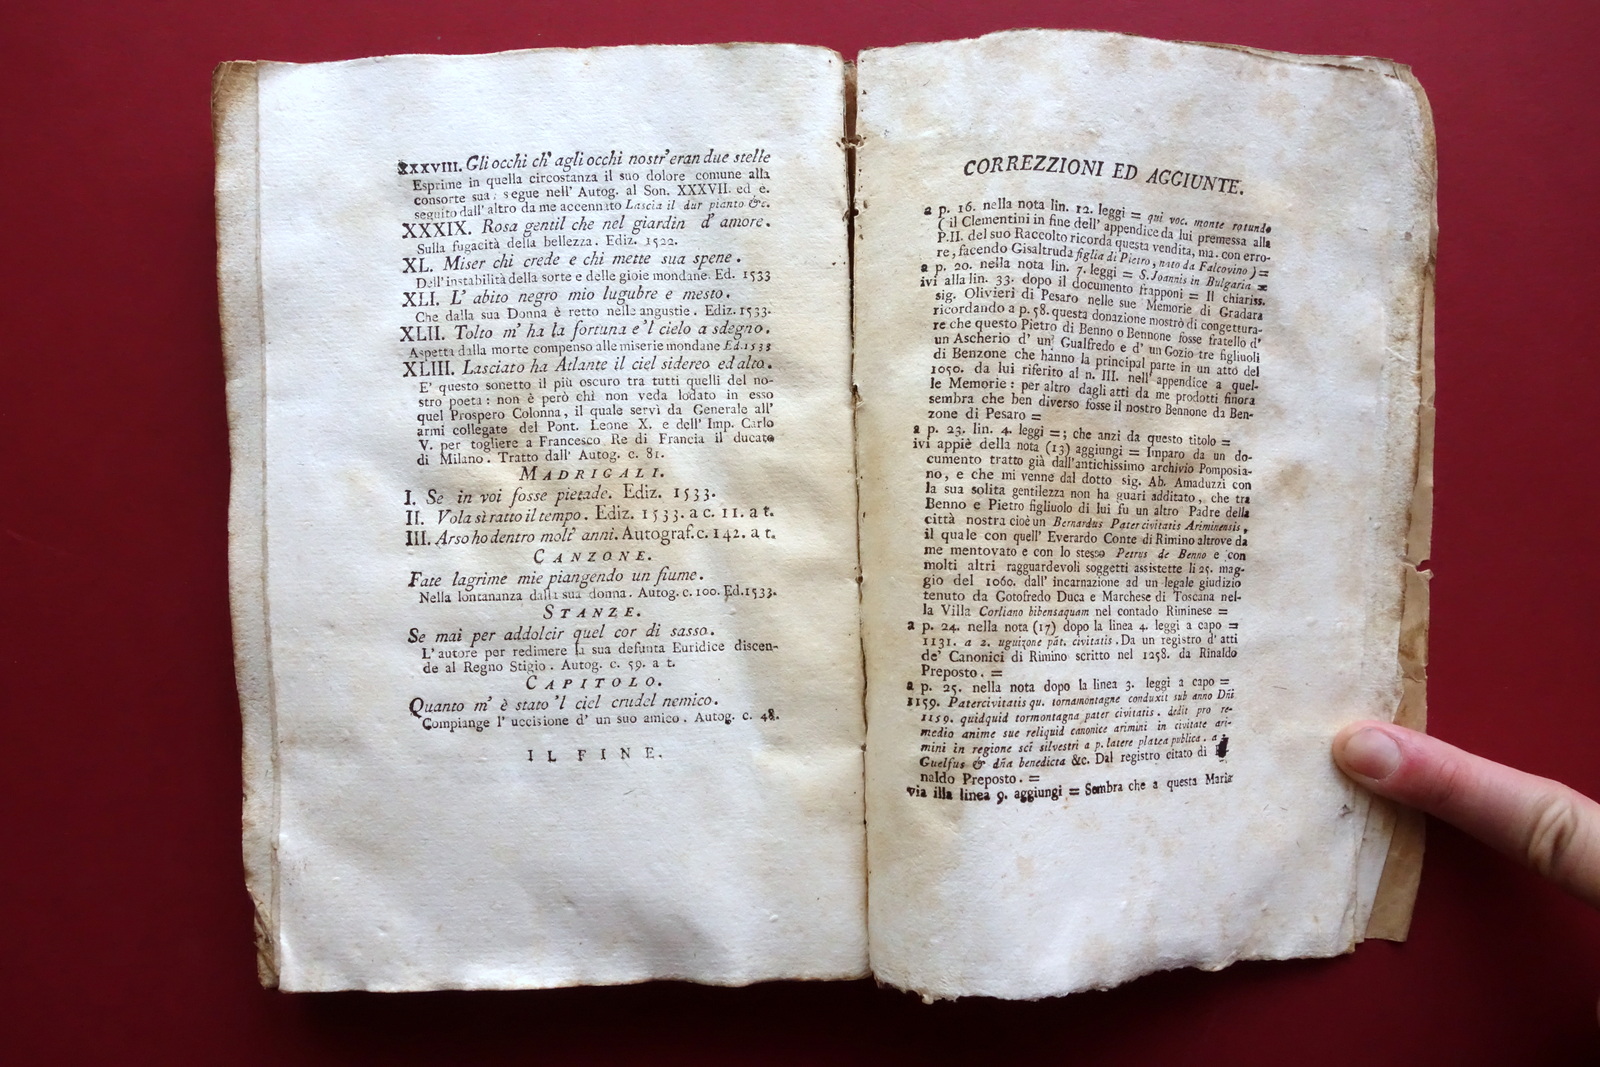 XXXVIII. Gli occhi ch' agli occhi nostr' eran due stelle
Esprime in quella circostanza il suo dolore comune alla
consorte sua; segue nell' Autog. al Son. XXXVII. ed è.
seguito dall' altro da me accennato Lascia il dur pianto &c.
XXXIX. Rosa gentil che nel giardin d' amore.
Sulla fugacità della bellezza. Ediz. 1522.
XL. Miser chi crede e chi mette sua spene.
Dell' instabilità della sorte e delle gioie mondane. Ed. 1533
XLI. L' abito negro mio lugubre e mesto.
Che dalla sua Donna è retto nelle angustie. Ediz. 1533.
XLII. Tolto m' ha la fortuna e 'l cielo a sdegno.
Aspetta dalla morte compenso alle miserie mondane Ed. 1533
XLIII. Lasciato ha Atlante il ciel sidereo ed alto.
E' questo sonetto il più oscuro tra tutti quelli del no-
stro poeta: non è però chi non veda lodato in esso
quel Prospero Colonna, il quale servì da Generale all'
armi collegate del Pont. Leone X. e dell' Imp. Carlo
V. per togliere a Francesco Re di Francia il ducato
di Milano. Tratto dall' Autog. c. 81.
MADRIGALI.
I. Se in voi fosse pietade. Ediz. 1533.
II. Vola sì ratto il tempo. Ediz. 1533. a c. 11. a t.
III. Arso ho dentro molt' anni. Autograf. c. 142. a t.
CANZONE.
Fate lagrime mie piangendo un fiume.
Nella lontananza dalla sua donna. Autog. c. 100. Ed. 1533.
STANZE.
Se mai per addolcir quel cor di sasso.
L' autore per redimere la sua defunta Euridice discen-
de al Regno Stigio. Autog. c. 59. a t.
CAPITOLO.
Quanto m' è stato 'l ciel crudel nemico.
Compiange l' uccisione d' un suo amico. Autog. c. 48.
IL FINE.
CORREZZIONI ED AGGIUNTE.
a p. 16. nella nota lin. 12. leggi = qui voc. monte rotundo
(il Clementini in fine dell' appendice da lui premessa alla
P.II. del suo Raccolto ricorda questa vendita, ma con erro-
re, facendo Gisaltruda figlia di Pietro, nato da Falcovino) =
a p. 20. nella nota lin. 7. leggi = S. Joannis in Bulgaria =
ivi alla lin. 33. dopo il documento frapponi = Il chiariss.
sig. Olivieri di Pesaro nelle sue Memorie di Gradara
ricordando a p. 58. questa donazione mostrò di congettura-
re che questo Pietro di Benno o Bennone fosse fratello d'
un Ascherio d' un Gualfredo e d' un Gozio tre figliuoli
di Benzone che hanno la principal parte in un atto del
1050. da lui riferito al n. III. nell' appendice a quel-
le Memorie: per altro dagli atti da me prodotti finora
sembra che ben diverso fosse il nostro Bennone da Ben-
zone di Pesaro =
a p. 23. lin. 4. leggi =; che anzi da questo titolo =
ivi appiè della nota (13) aggiungi = Imparo da un do-
cumento tratto già dall' antichissimo archivio Pomposia-
no, e che mi venne dal dotto sig. Ab. Amaduzzi con
la sua solita gentilezza non ha guari additato, che tra
Benno e Pietro figliuolo di lui fu un altro Padre della
città nostra cioè un Bernardus Pater civitatis Ariminensis,
il quale con quell' Everardo Conte di Rimino altrove da
me mentovato e con lo stesso Petrus de Benno e con
molti altri ragguardevoli soggetti assistette li 25. mag-
gio del 1060. dall' incarnazione ad un legale giudizio
tenuto da Gotofredo Duca e Marchese di Toscana nel-
la Villa Corliano bibensaquam nel contado Riminese =
a p. 24. nella nota (17) dopo la linea 4. leggi a capo =
1131. a z. uguizone pat. civitatis. Da un registro d' atti
de' Canonici di Rimino scritto nel 1258. da Rinaldo
Preposto. =
a p. 25. nella nota dopo la linea 3. leggi a capo =
1159. Patercivitatis qu. tornamontagne conduxit sub anno Dñi
1159. quidquid tormontagna pater civitatis. dedit pro re-
medio anime sue reliquid canonice arimini in civitate ari-
mini in regione sci silvestri a p. latere platea publica. a
Guelfus & dña benedicta &c. Dal registro citato di
naldo Preposto. =
via illa linea 9. aggiungi = Sembra che a questa Maria